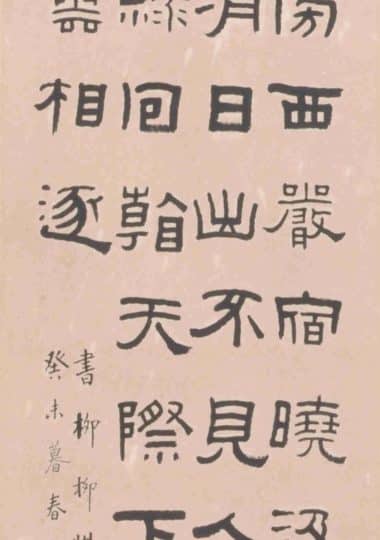 傍西嚴宿曉汲
日出不見人
綠回看天際下
雲相逐
書柳柳州
癸未暮春